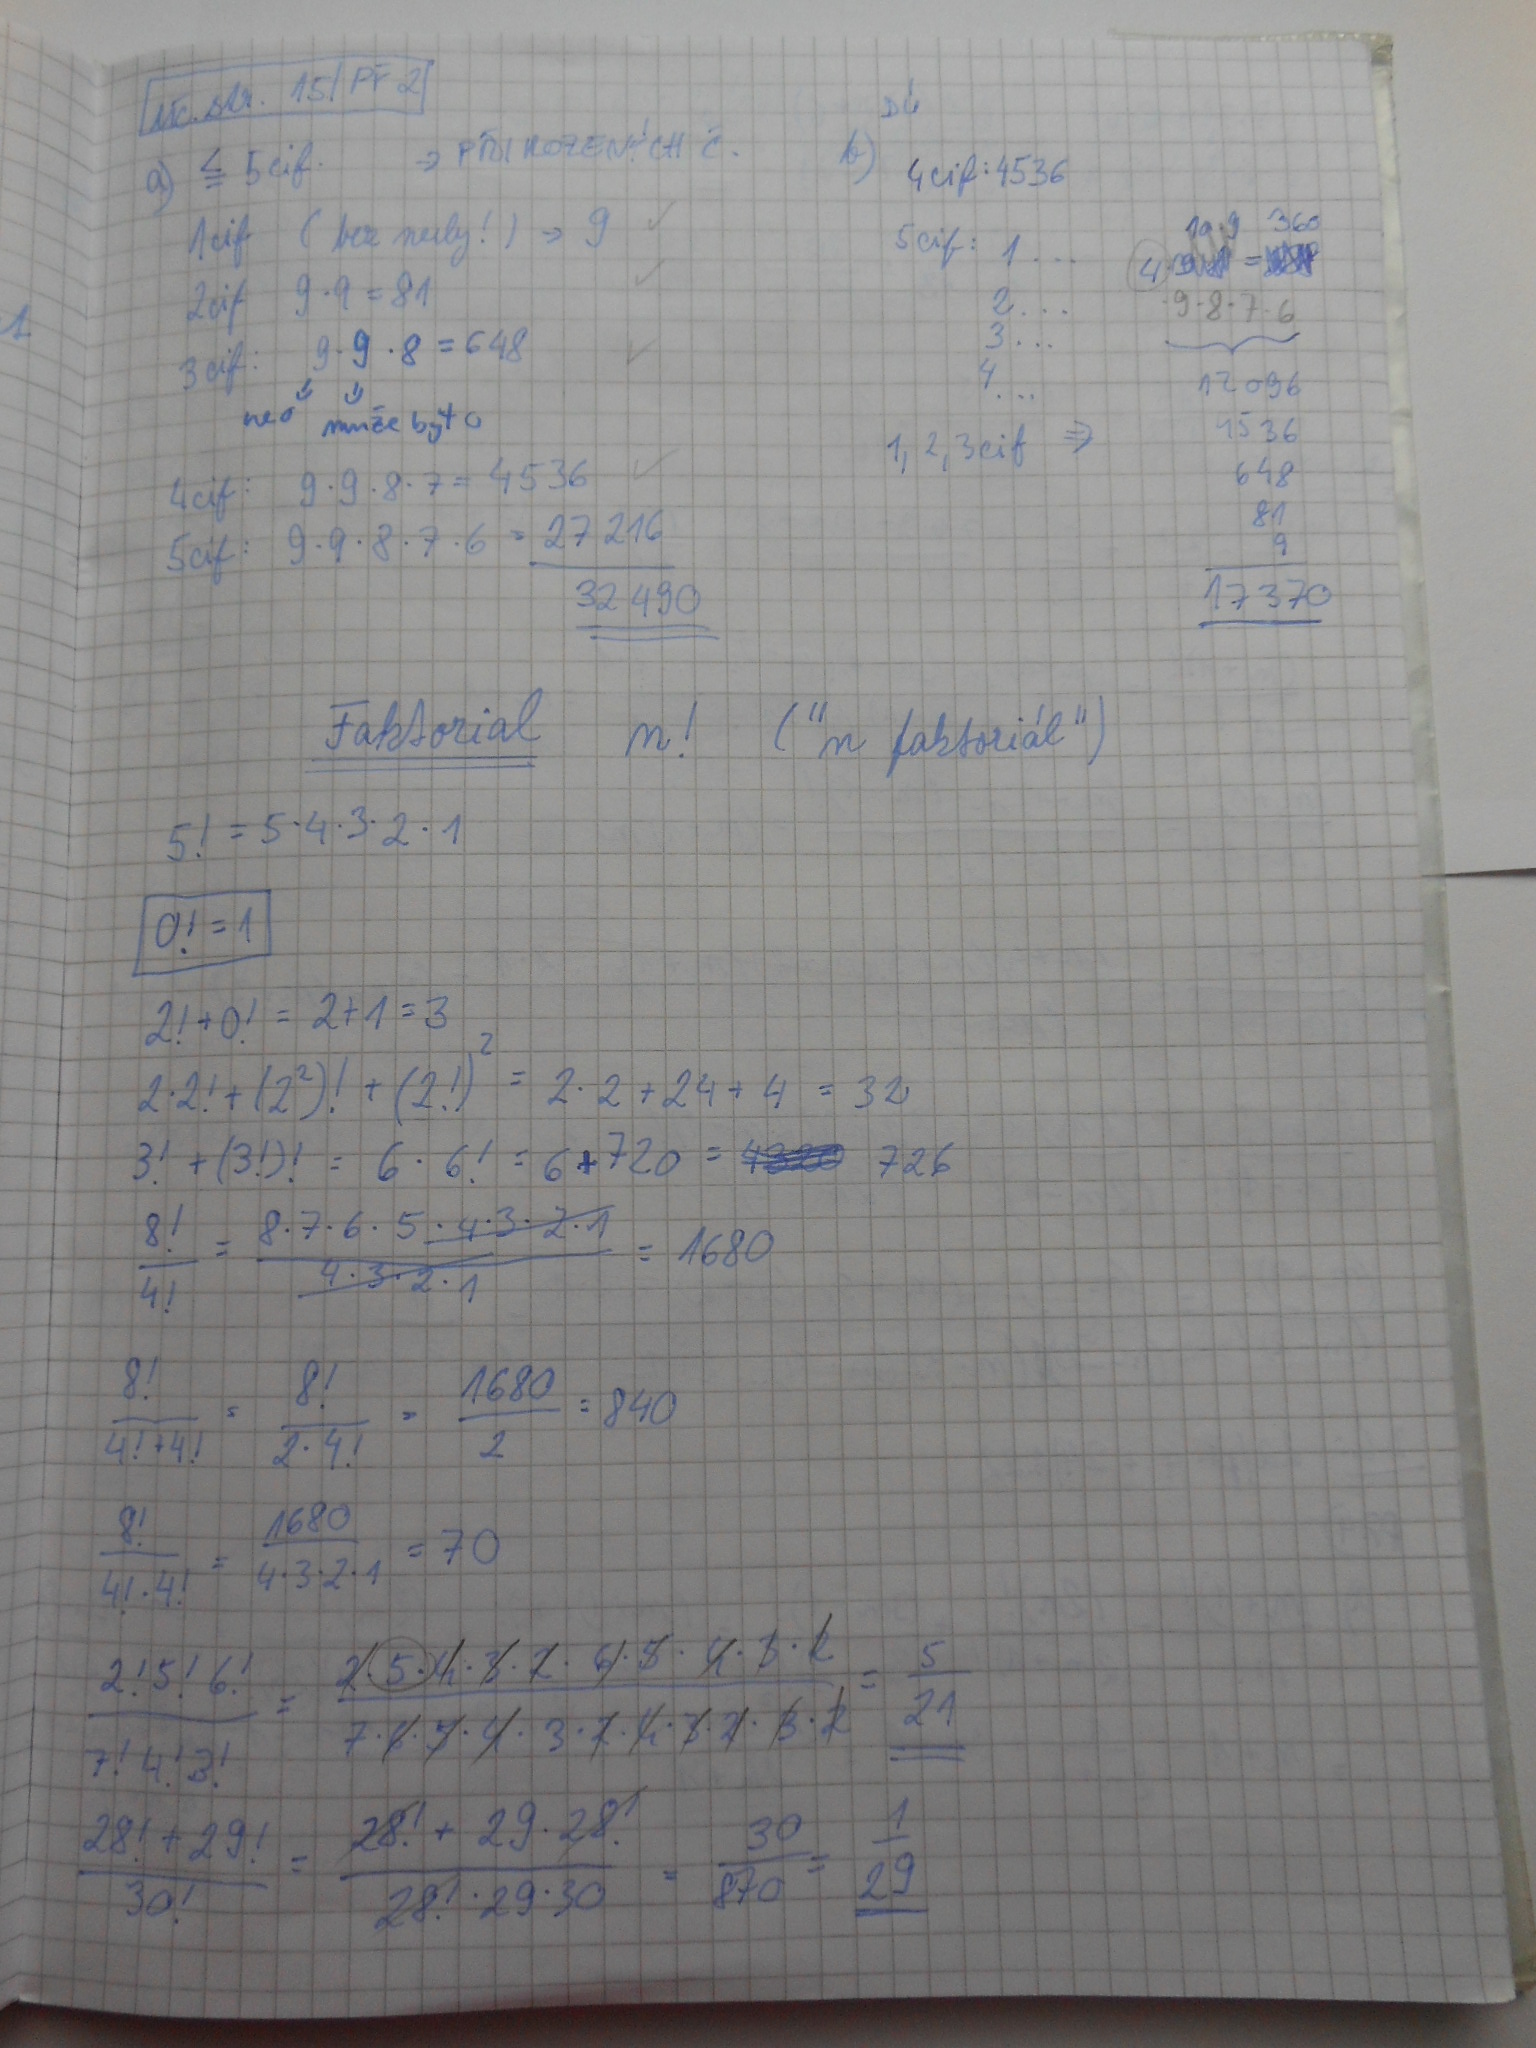 uč. str. 15/ PŘ 2
a) ≦ 5cif. → PŘIROZENÝCH Č.
1cif (bez nuly!) → 9 ✓
2cif 9·9 = 81 ✓
3cif: 9·9·8 = 648 ✓
ne 0 může být 0
4cif: 9·9·8·7 = 4536 ✓
5cif: 9·9·8·7·6 = 27 216
32 490
DÚ
b) 4cif: 4536
5cif: 1...
2...
3...
4...
10·9 360
4 · =
·9·8·7·6
12 096
4536
1, 2, 3cif ⇒
648
81
9
17 370
1
Faktorial n! ("n faktoriál")
5! = 5·4·3·2·1
0! = 1
2! + 0! = 2+1 = 3
2·2! + (2²)! + (2!)² = 2·2 + 24 + 4 = 32
3! + (3!)! = 6 · 6! = 6 + 720 = 4320 726
8!/4! = 8·7·6·5·4·3·2·1/4·3·2·1 = 1680
8!/4!+4! = 8!/2·4! = 1680/2 = 840
8!/4!·4! = 1680/4·3·2·1 = 70
2!5!6!/7!4!3! = 2·5·4·3·2·6·5·4·3·2/7·6·5·4·3·2·4·3·2·3·2 = 5/21
28! + 29!/30! = 28! + 29·28!/28!·29·30 = 30/870 = 1/29